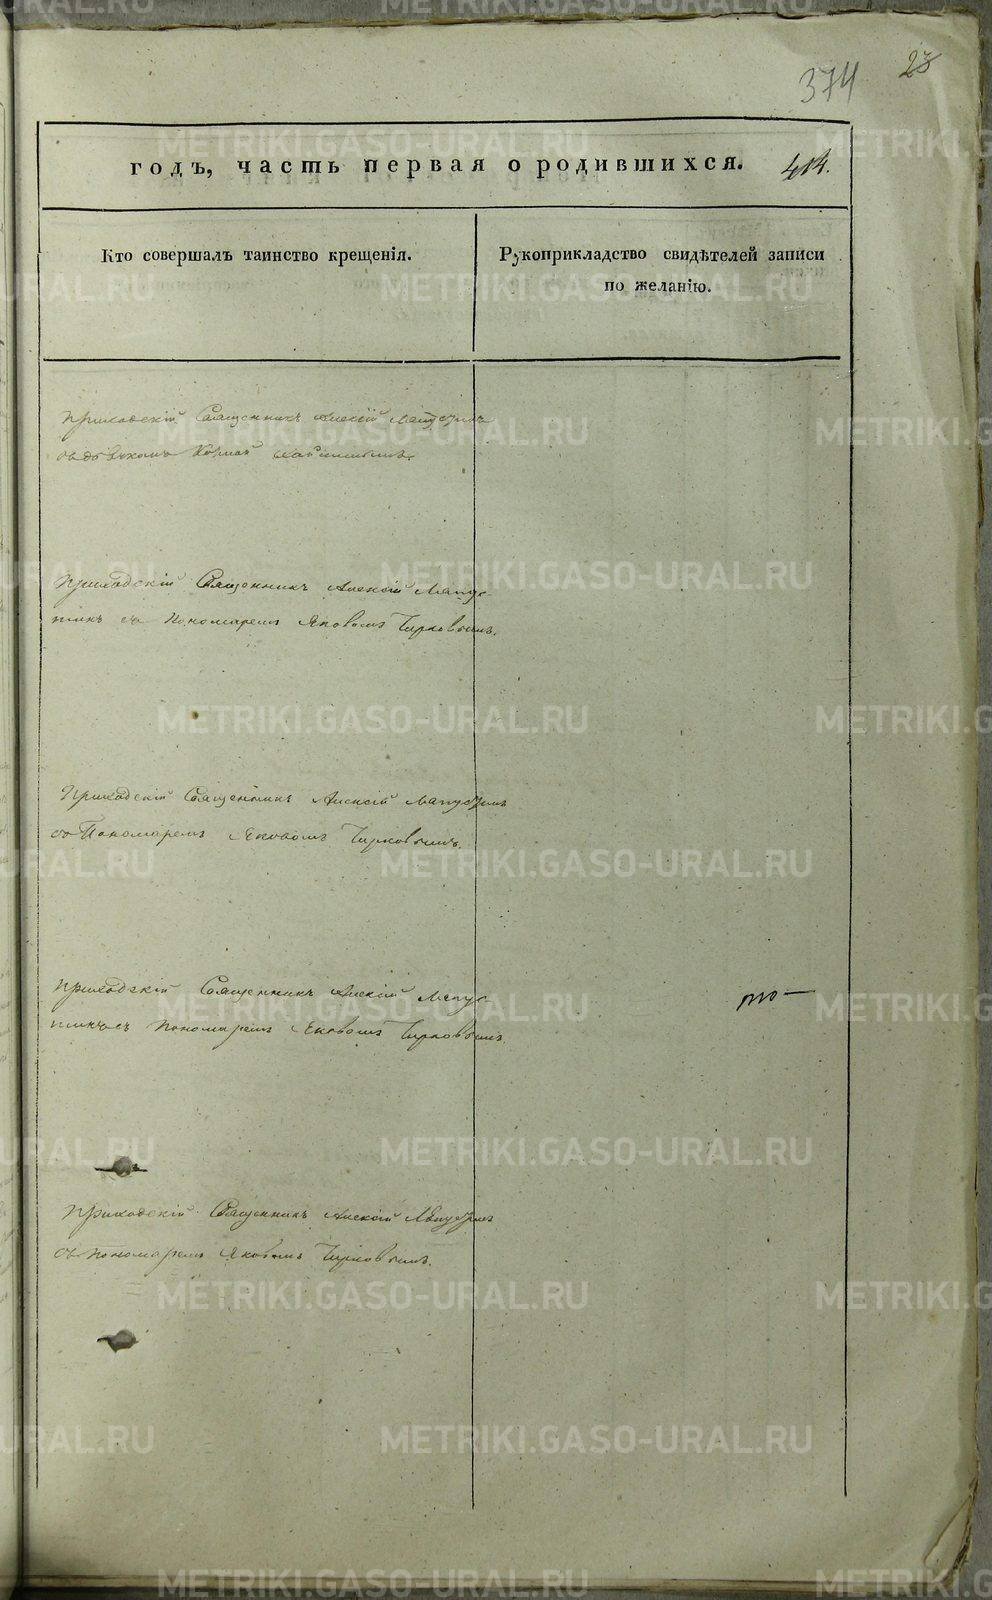 374 23
годъ, часть первая о родившихся. 414.
Кто совершалъ таинство крещенія.
Рукоприкладство свидѣтелей записи
по желанію.
Приходскій Священникъ Алексій
съ дьячкомъ
Приходскій Священникъ Алексій Мапус-
тинъ съ Пономаремъ Яковомъ Чирковымъ.
Приходскій Священникъ Алексій Мапустинъ
съ Пономаремъ Яковомъ Чирковымъ.
Приходскій Священникъ Алексій Мапус-
тинъ съ Пономаремъ Яковомъ Чирковымъ.
Приходскій Священникъ Алексій Мапустинъ
съ Пономаремъ Яковомъ Чирковымъ.
METRIKI.GASO-URAL.RU